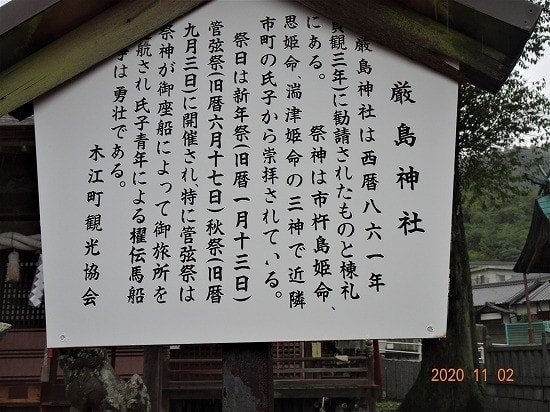 厳島神社
厳島神社は西暦八六一年
貞観三年)に勧請されたものと棟札
にある。 祭神は市杵島姫命、
思姫命、湍津姫命の三神で近隣
市町の氏子から崇拝されている。
祭日は新年祭(旧暦一月十三日)
管弦祭(旧暦六月十七日)秋祭(旧暦
九月三日)に開催され、特に管弦祭は
祭神が御座船によって御旅所を
航され氏子青年による櫂伝馬船
は勇壮である。
木江町観光協会
2020 11 02